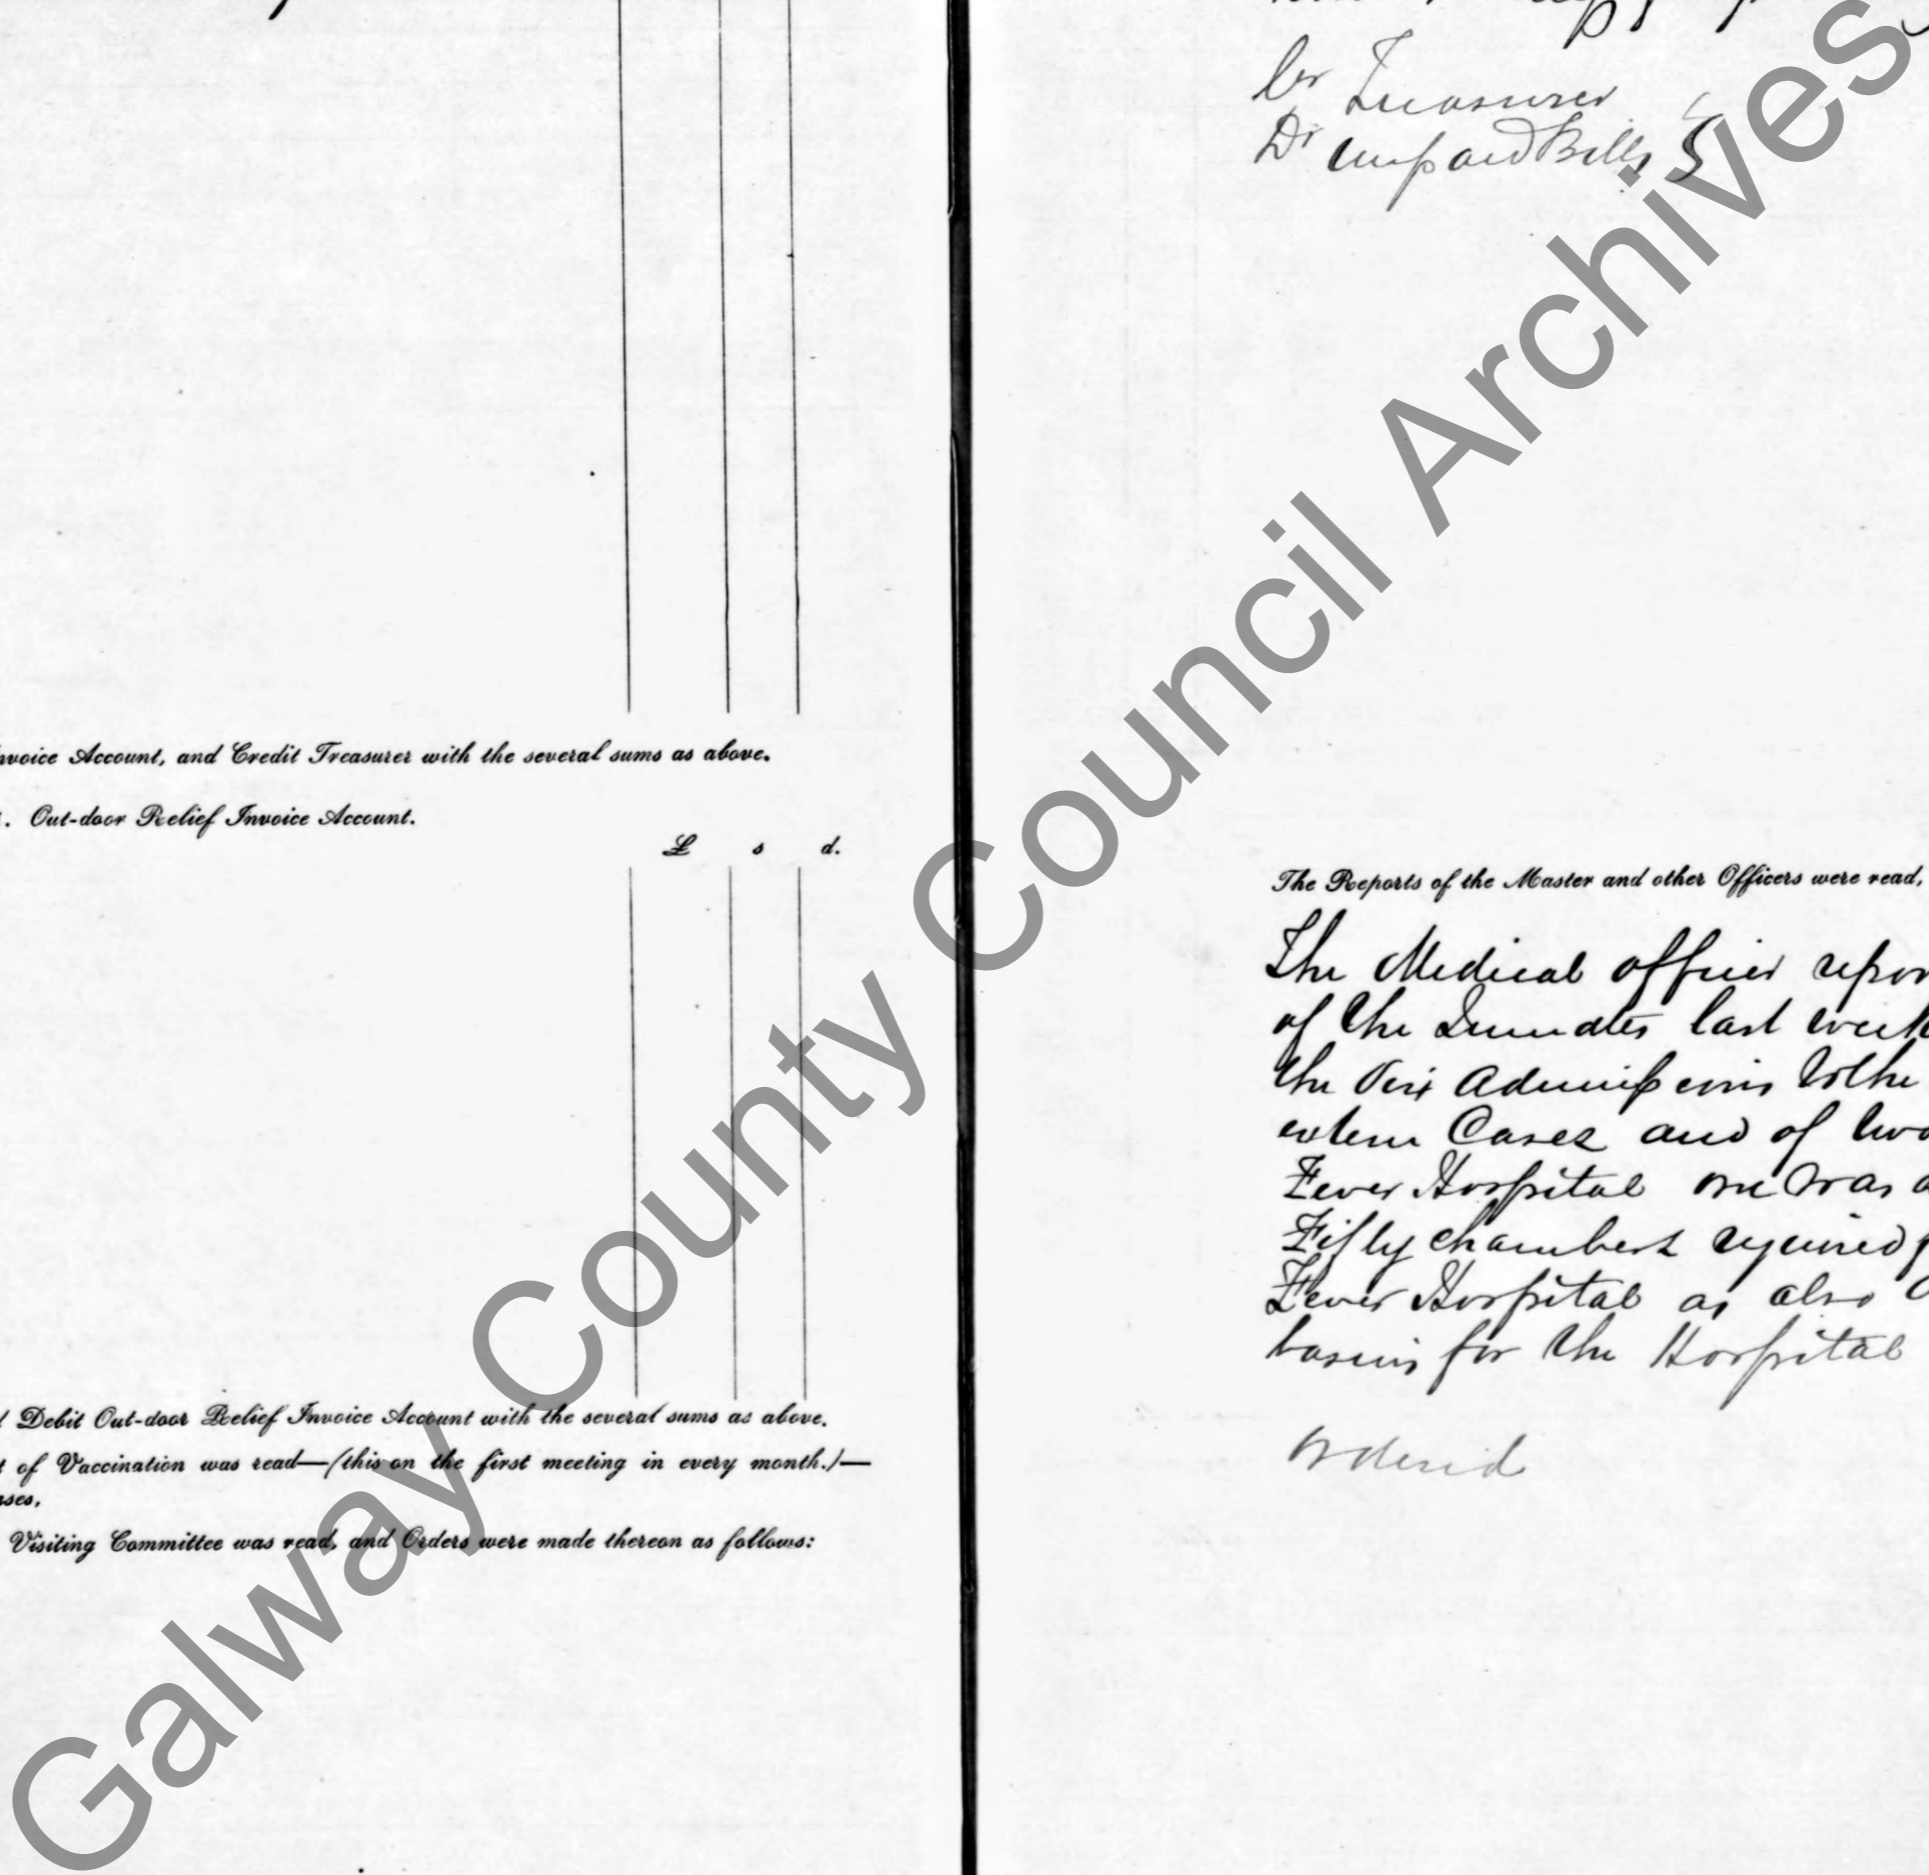 nvoice Account, and Credit Treasurer with the several sums as above.
. Out-door Relief Invoice Account.
£ s d.
Debit Out-door Relief Invoice Account with the several sums as above.
t of Vaccination was read—(this on the first meeting in every month.)—
ses,
Visiting Committee was read, and Orders were made thereon as follows:
Cr Treasurer
Dr unpaid Bills
The Reports of the Master and other Officers were read,
The Medical officer repor
of the Inmates last week
the Admissions to the
extern Cases and of two
Fever Hospital one was
Fifty chambers required f
Fever Hospital as also
basins for the Hospital
Ordered
Galway County Council Archives